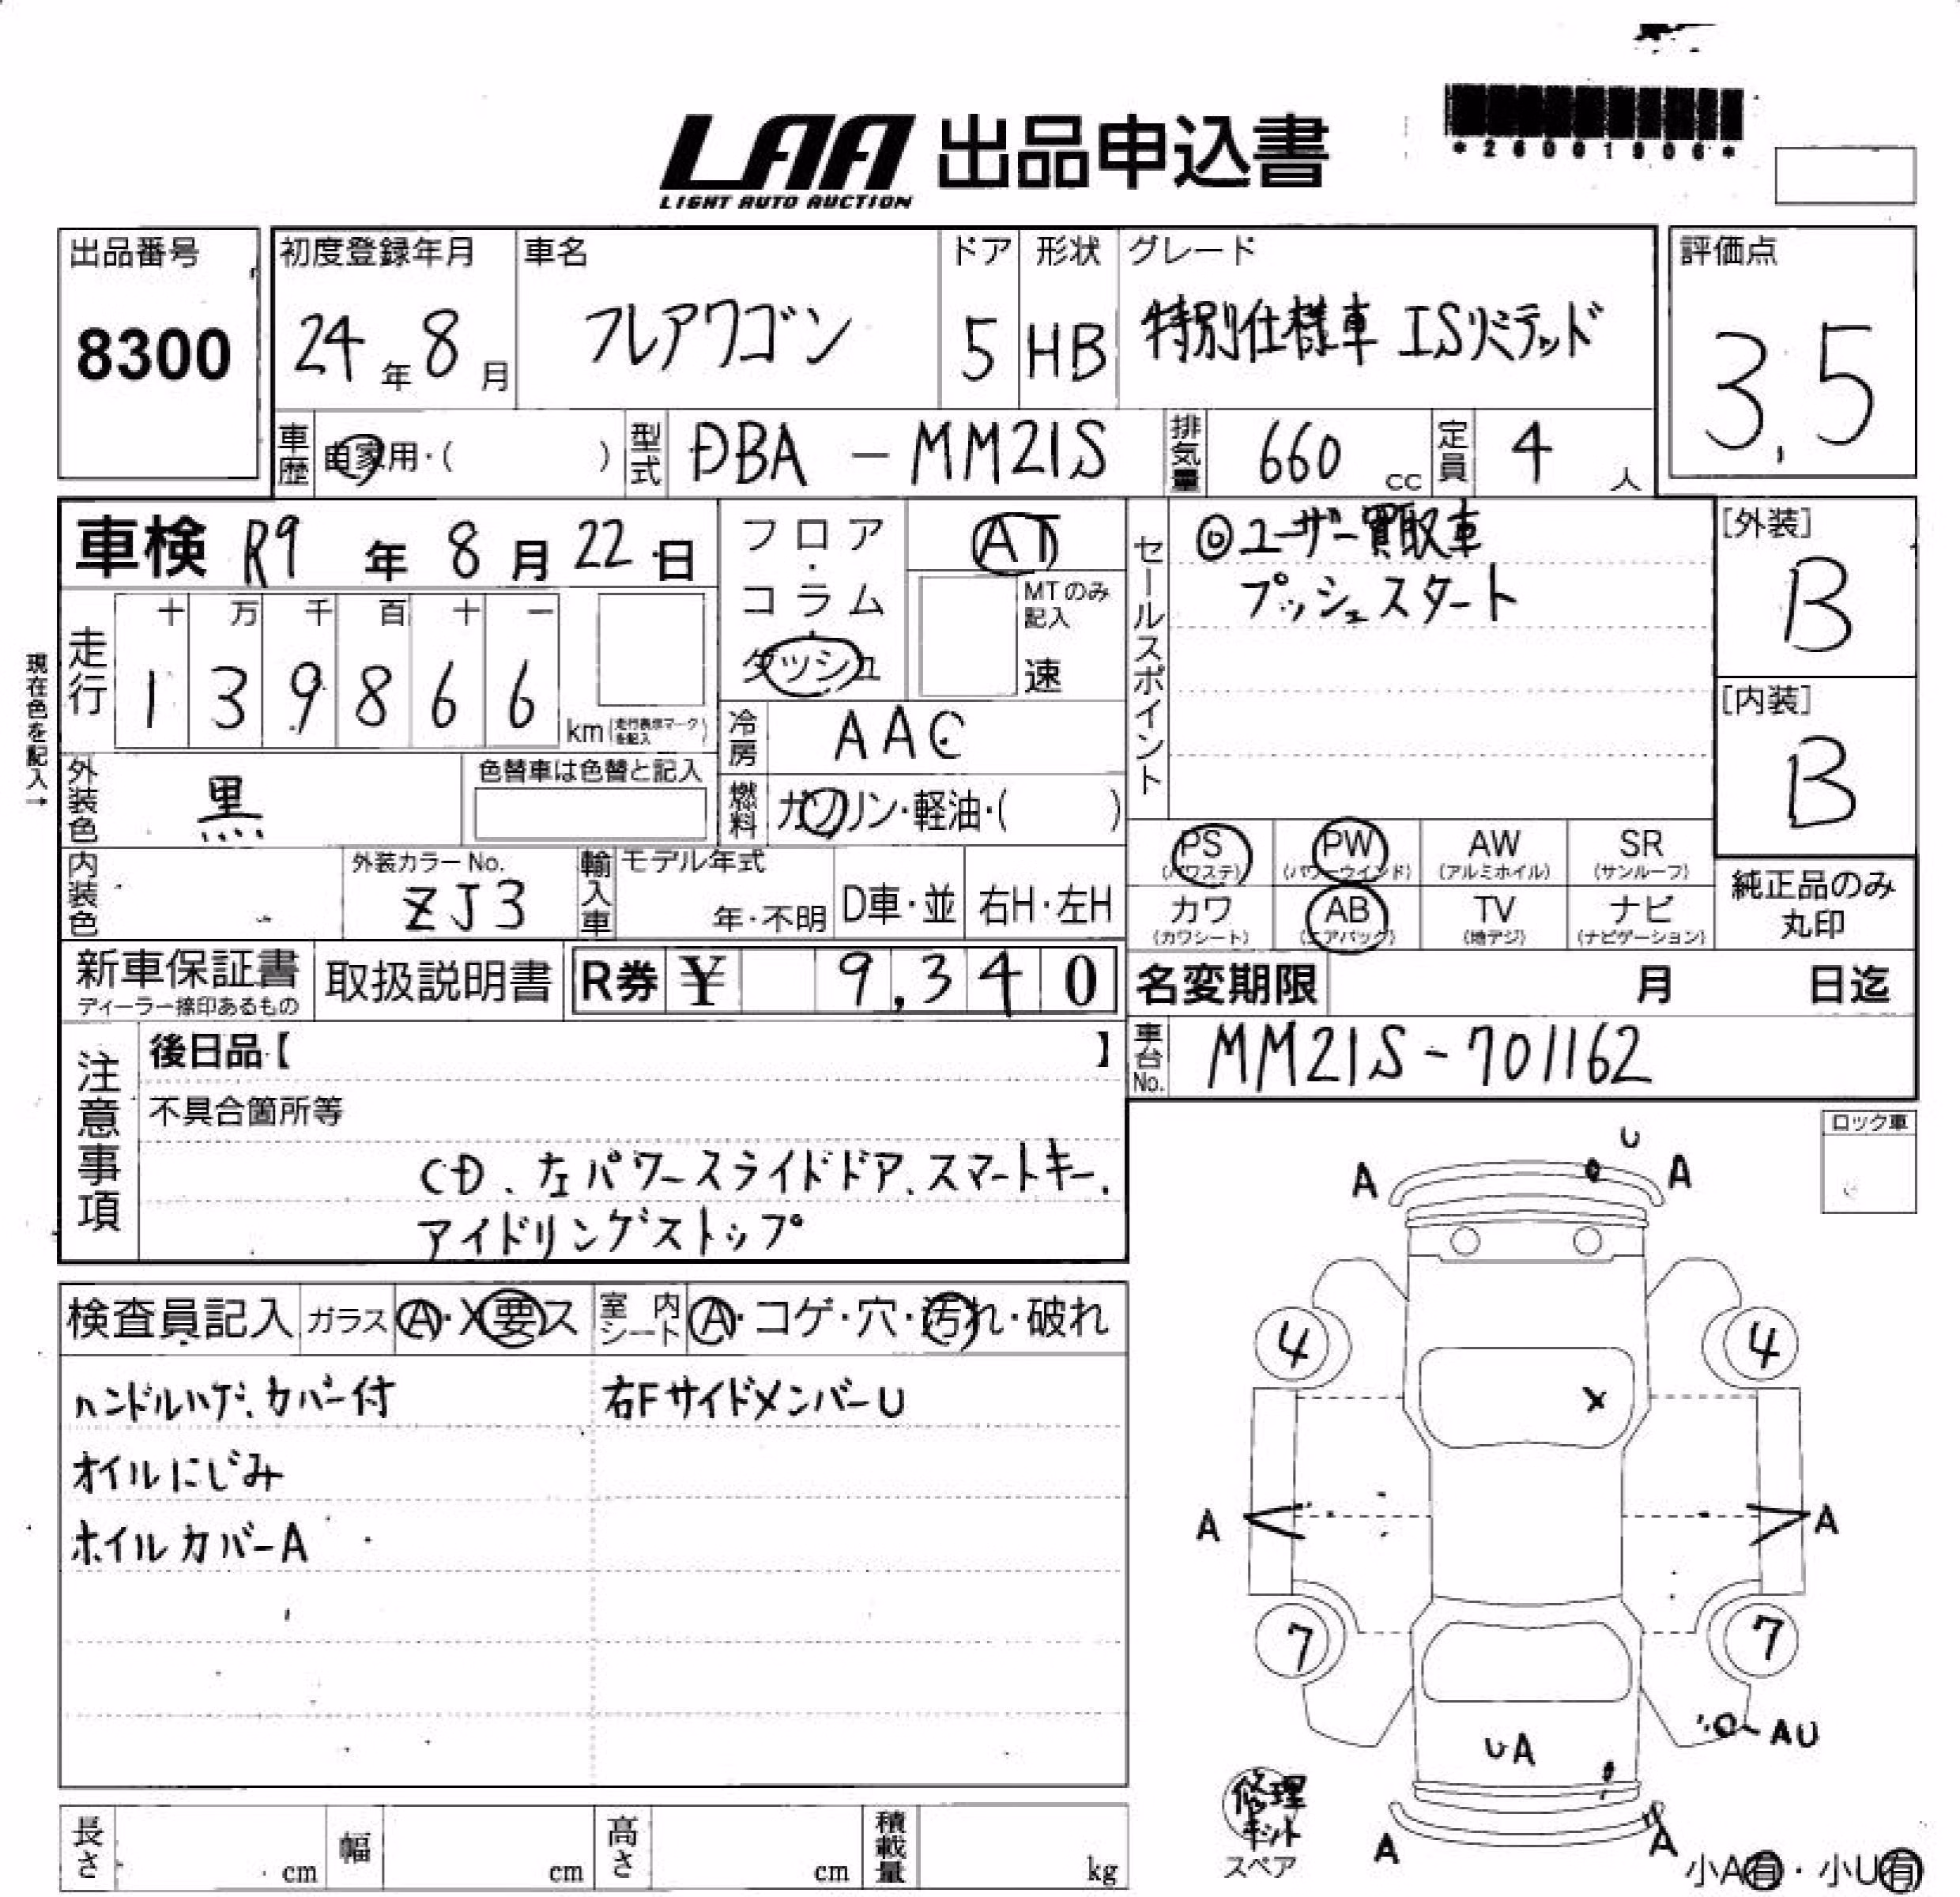 LAA 出品申込書
LIGHT AUTO AUCTION
*26001906*
出品番号
8300
初度登録年月
24年8月
車名
フレアワゴン
ドア
5
形状
HB
グレード
特別仕様車 ISリミテッド
評価点
3.5
車歴
自家用・( )
型式
DBA - MM21S
排気量
660 cc
定員
4 人
車検 R9 年 8 月 22 日
フロア・コラム・ダッシュ
AT
MTのみ記入
速
セールスポイント
◎ユーザー買取車
プッシュスタート
[外装]
B
[内装]
B
現在色を記入→
走行
十 万 千 百 十 一
1 3 9 8 6 6
km (走行表示マークを記入)
冷房
AAC
外装色
黒
色替車は色替と記入
燃料
ガソリン・軽油・( )
内装色
外装カラーNo.
ZJ3
輸入車
モデル年式
年・不明
D車・並
右H・左H
PS (パワステ)
PW (パワーウインド)
AW (アルミホイル)
SR (サンルーフ)
カワ (カワシート)
AB (エアバッグ)
TV (地デジ)
ナビ (ナビゲーション)
純正品のみ
丸印
新車保証書
ディーラー捺印あるもの
取扱説明書
R券 ¥ 9,340
名変期限 月 日迄
車台No.
MM21S-701162
注意事項
後日品【 】
不具合箇所等
CD、左パワースライドドア、スマートキー、
アイドリングストップ
ロック車
検査員記入
ガラス A・X要ス
室内シート A・コゲ・穴・汚れ・破れ
ハンドルハゲ、カバー付
オイルにじみ
ホイルカバーA
右FサイドメンバーU
U
A A
4 4
X
A A
7 7
AU
UA
修理キット
スペア
A A
小A有・小U有
長さ cm
幅 cm
高さ cm
積載量 kg